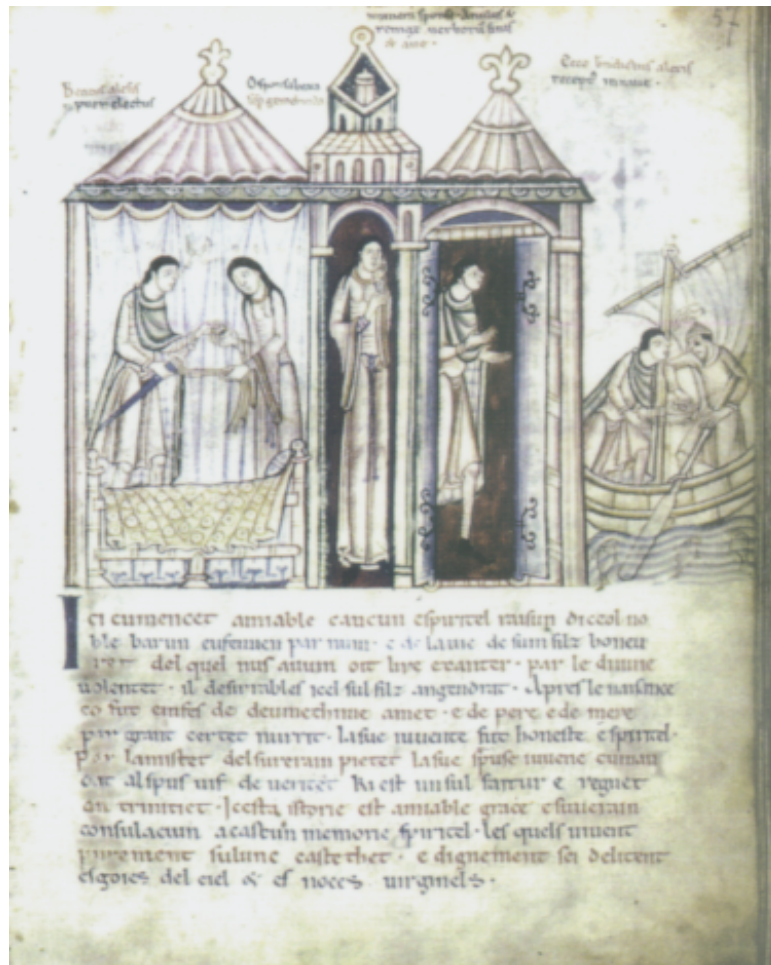 57
Beatus alexis
puer electus
O sponsa beata
semp gemebunda
Ecce benedictus alexis
receptus in naue ·
Ici cumencet amiable cancun espiritel raisun diceol no
ble barun eufemien par num · e de la uie de sum filz boneu
ret del quel nus auum oit lire e canter · par le diuine
uolentet · il desirrables icel sul filz angendrat · Apres le naisance
co fut emfes de deu methime amet · e de pere e de mere
par grant certet nurrit · la sue iuuente fut honeste e spiritel ·
Par lamistet del surerain pietet la sue spuse iuuene cuman
dat al spus uif de ueritet Ki est un sul faitur e regnet
an trinitiet · Icesta istorie est amiable grace e suuerain
consulaciun a cascun memorie spiritel · les quels uiuent
purement sulunc castethet · e dignement sei delitent
es goies del ciel & es noces uirginels ·